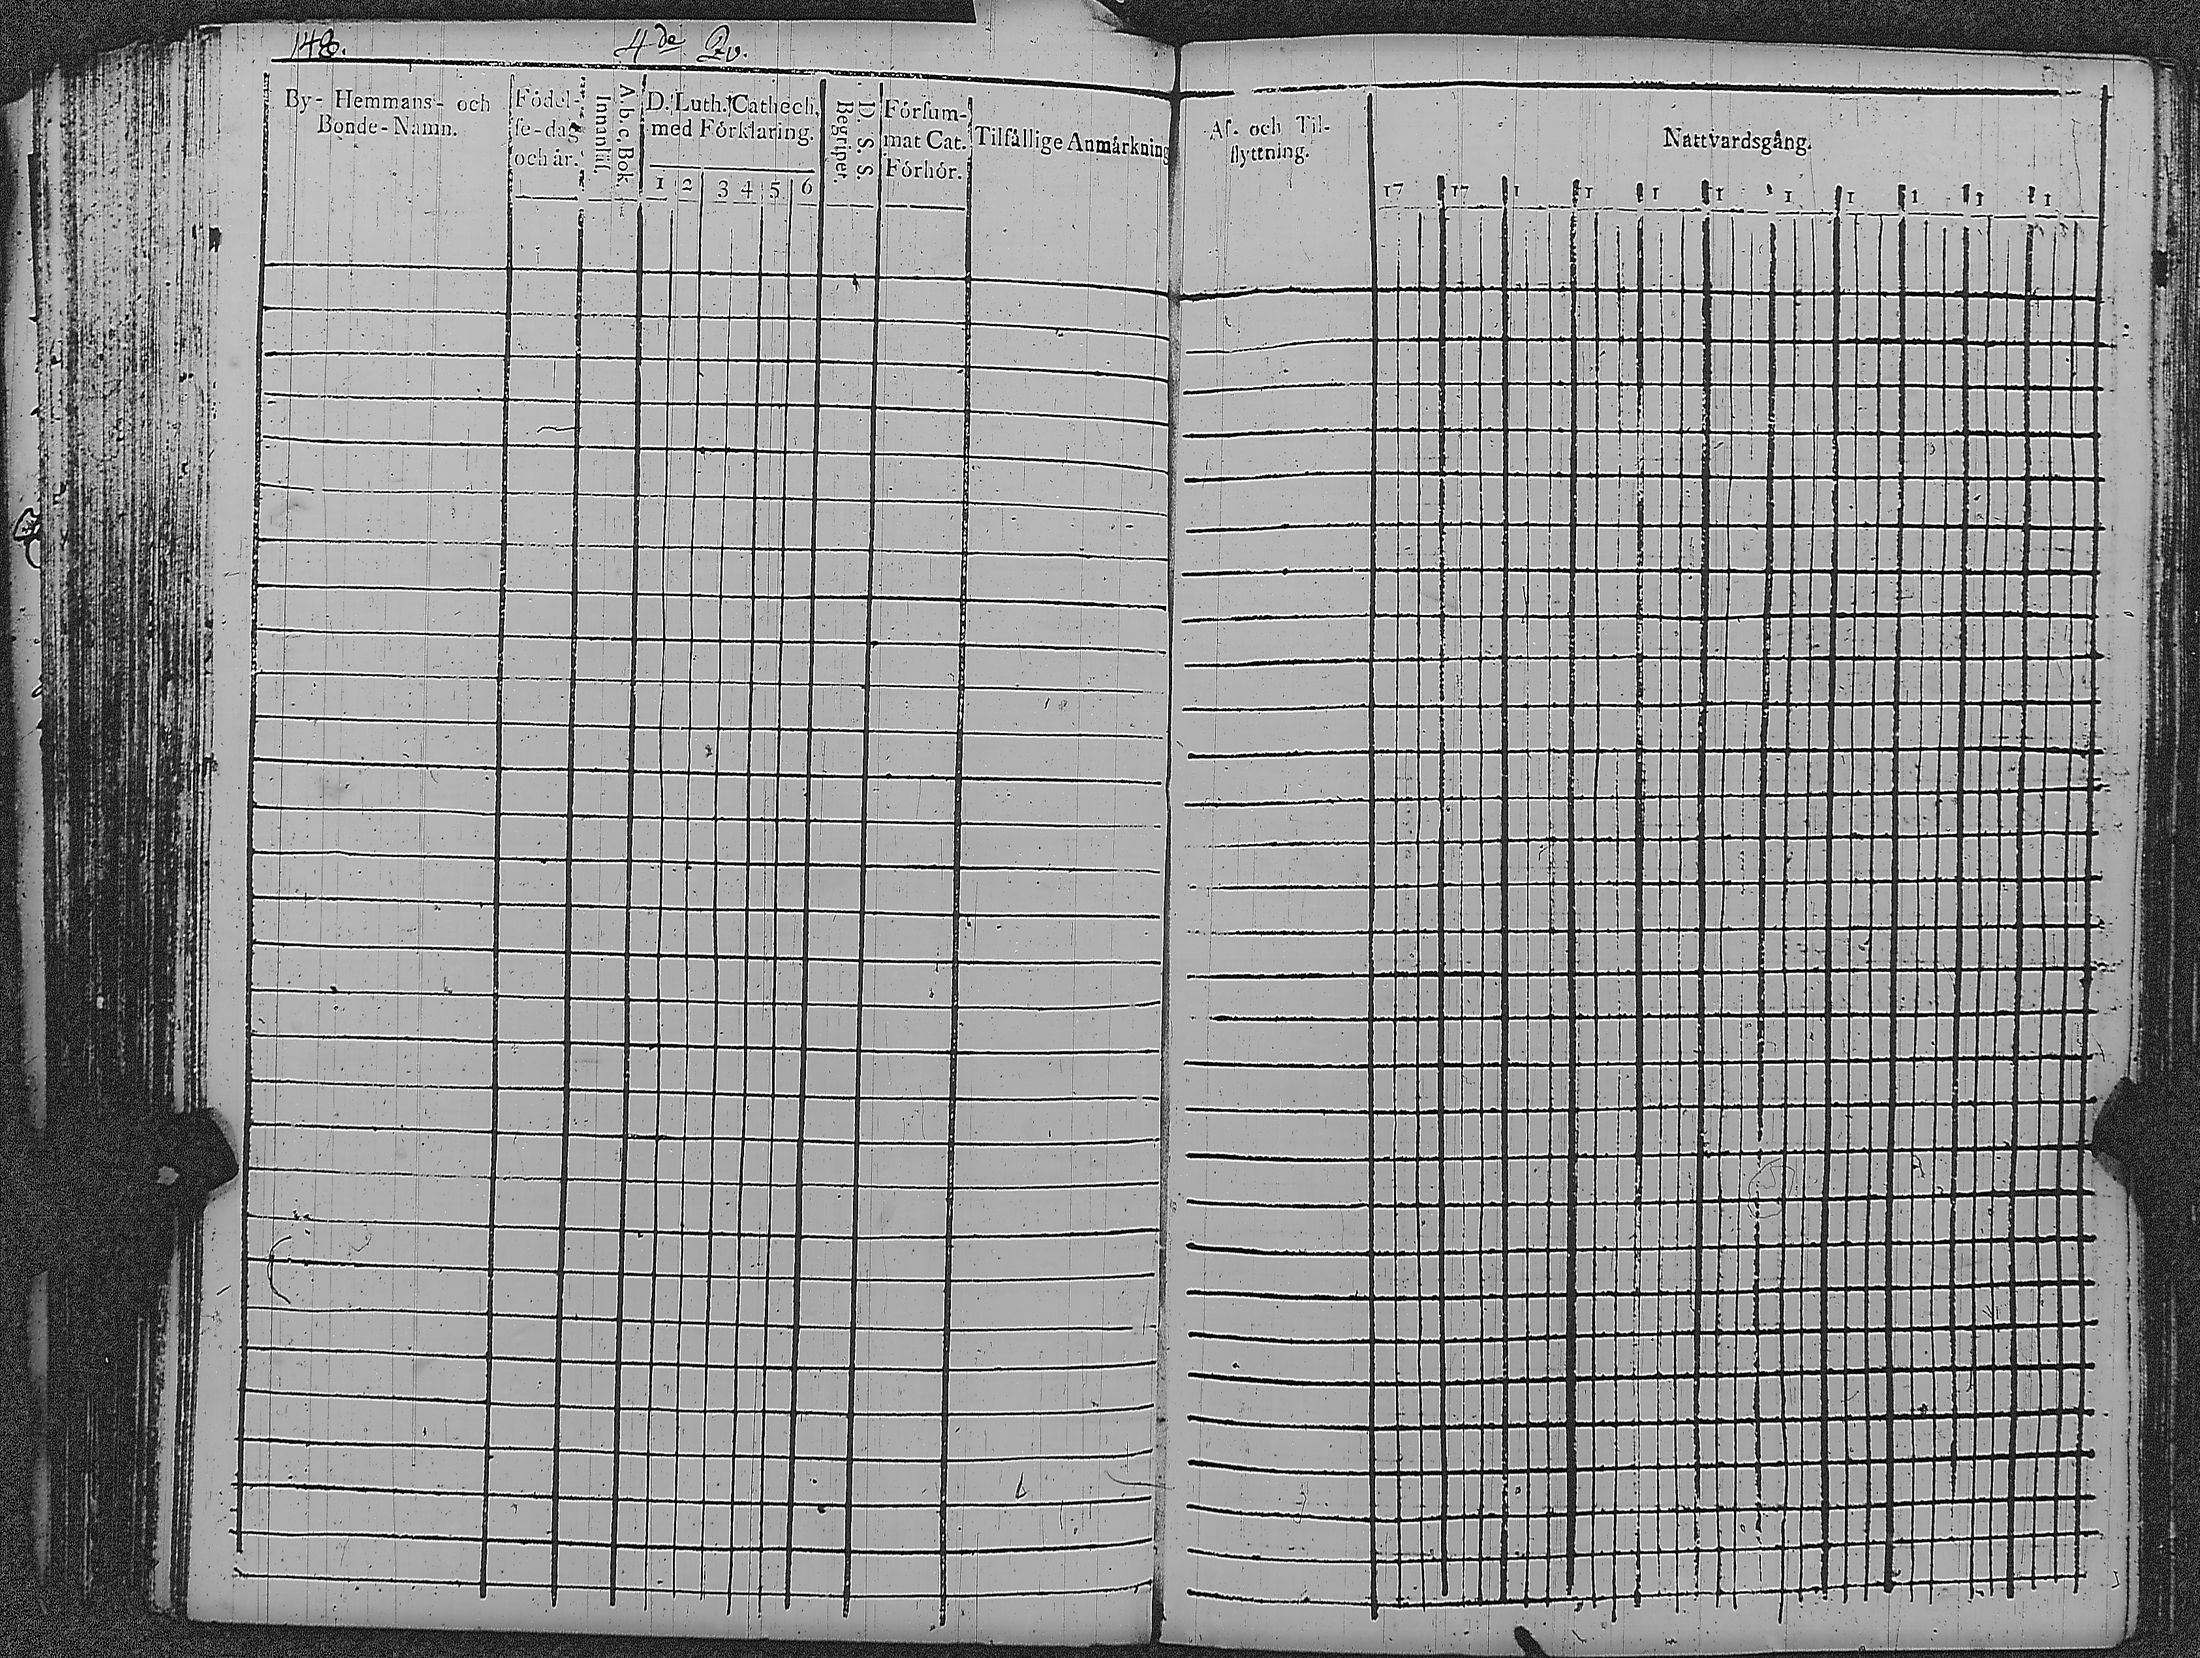 148.
4de Qv.
By- Hemmans- och
Bonde-Namn.
Födel-
se-dag
och år.
A. b. c. Bok.
Innanläs.
D. Luth. Cathech.
med Förklaring.
1 2 3 4 5 6
D. S. S.
Begriper.
Försum-
mat Cat.
Förhör.
Tilfällige Anmärkning
Af- och Til-
flyttning.
Nattvardsgång.
17 17 1 1 1 1 1 1 1 1 1